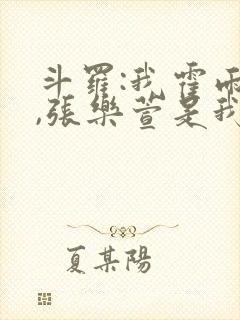 斗羅:我霍雨
,張樂萱是我
夏某陽